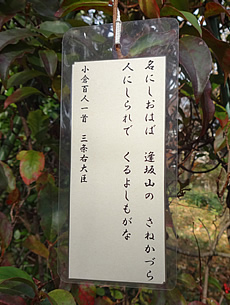 名にしおはば　逢坂山の　さねかづら
人にしられで　くるよしもがな
小倉百人一首　三条右大臣